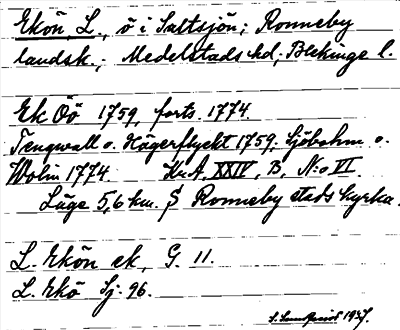 Ekön L., ö i Saltsjön; Ronneby
landsk.; Medelstads hd; Blekinge l.
Ek Öö 1759, forts. 1774.
Tengwall o. Hägerflyckt 1759; Sjöbohm o.
Wolin 1774. Kr.A. XXIV, B, N:o VI.
Läge 5,6 km. S Ronneby stads kyrka.
L. Ekön ek, G. 11.
L. Ekö Sj. 96.
1937.